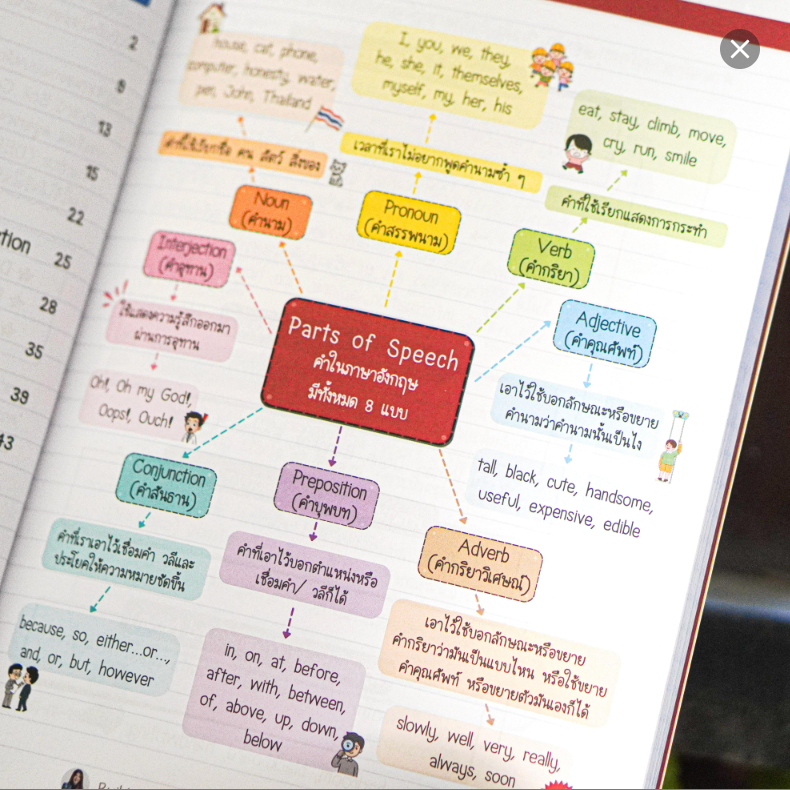 2
9
13
15
22
tion 25
28
35
39
43
house, cat, phone,
computer, honesty, water,
pen, John, Thailand
คำที่ใช้เรียกชื่อ คน สัตว์ สิ่งของ
Noun
(คำนาม)
I, you, we, they,
he, she, it, themselves,
myself, my, her, his
เวลาที่เราไม่อยากพูดคำนามซ้ำ ๆ
Pronoun
(คำสรรพนาม)
eat, stay, climb, move,
cry, run, smile
คำที่ใช้เรียกแสดงการกระทำ
Verb
(คำกริยา)
Interjection
(คำอุทาน)
ใช้แสดงความรู้สึกออกมา
ผ่านการอุทาน
Oh!, Oh my God!,
Oops!, Ouch!
Parts of Speech
คำในภาษาอังกฤษ
มีทั้งหมด 8 แบบ
Adjective
(คำคุณศัพท์)
เอาไว้ใช้บอกลักษณะหรือขยาย
คำนามว่าคำนามนั้นเป็นไง
tall, black, cute, handsome,
useful, expensive, edible
Conjunction
(คำสันธาน)
คำที่เราเอาไว้เชื่อมคำ วลีและ
ประโยคให้ความหมายชัดขึ้น
because, so, either...or...,
and, or, but, however
Preposition
(คำบุพบท)
คำที่เอาไว้บอกตำแหน่งหรือ
เชื่อมคำ/ วลีก็ได้
in, on, at, before,
after, with, between,
of, above, up, down,
below
Adverb
(คำกริยาวิเศษณ์)
เอาไว้ใช้บอกลักษณะหรือขยาย
คำกริยาว่ามันเป็นแบบไหน หรือใช้ขยาย
คำคุณศัพท์ หรือขยายตัวมันเองก็ได้
slowly, well, very, really,
always, soon